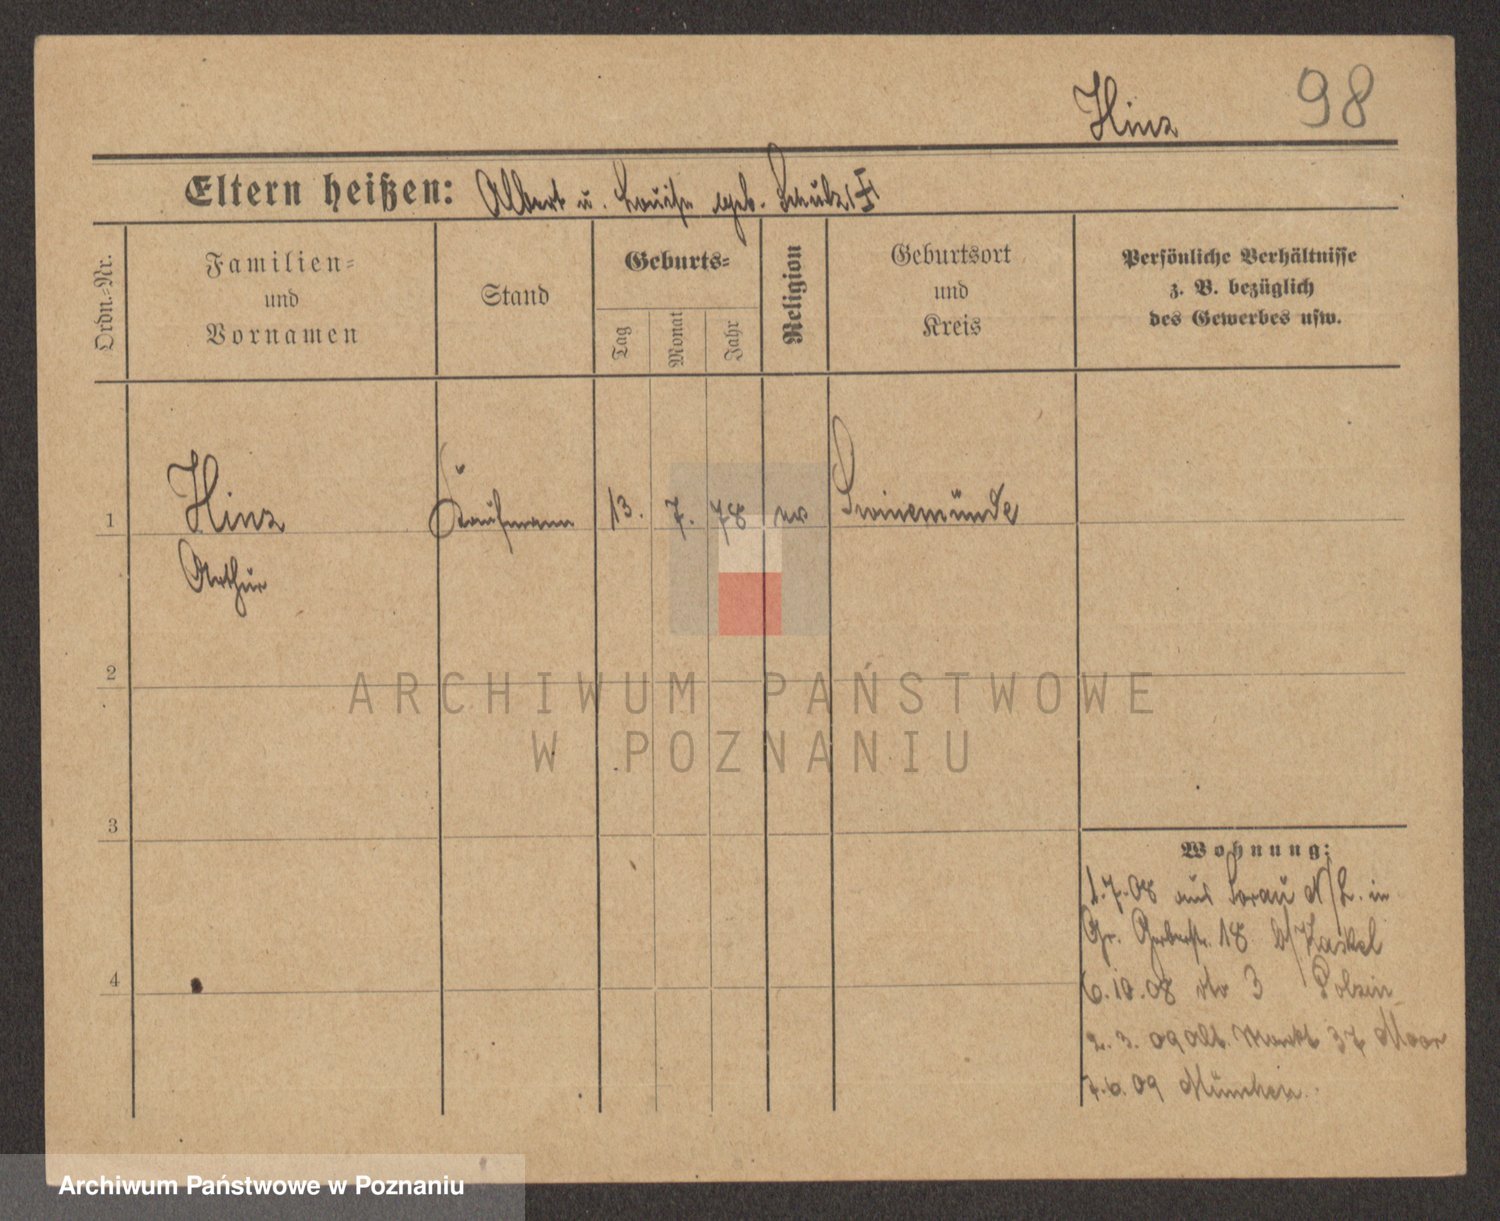 Hinz 98
Eltern heißen: Albert u. Louise geb. Schulz
Ordn.=Nr.
Familien=
und
Vornamen
Stand
Geburts=
Tag
Monat
Jahr
Religion
Geburtsort
und
Kreis
Persönliche Verhältnisse
z. B. bezüglich
des Gewerbes usw.
1 Hinz Kaufmann 13. 7. 78 ev Swinemünde
Arthur
2
ARCHIWUM PAŃSTWOWE
W POZNANIU
3
Wohnung:
1.7.08 aus Sorau N/L. in
Gr. Gerberstr. 18 b/Haskel
6.10.08 do 3 Polzin
2.3.09 Alt. Markt 37 Moor
7.6.09 München.
4
Archiwum Państwowe w Poznaniu